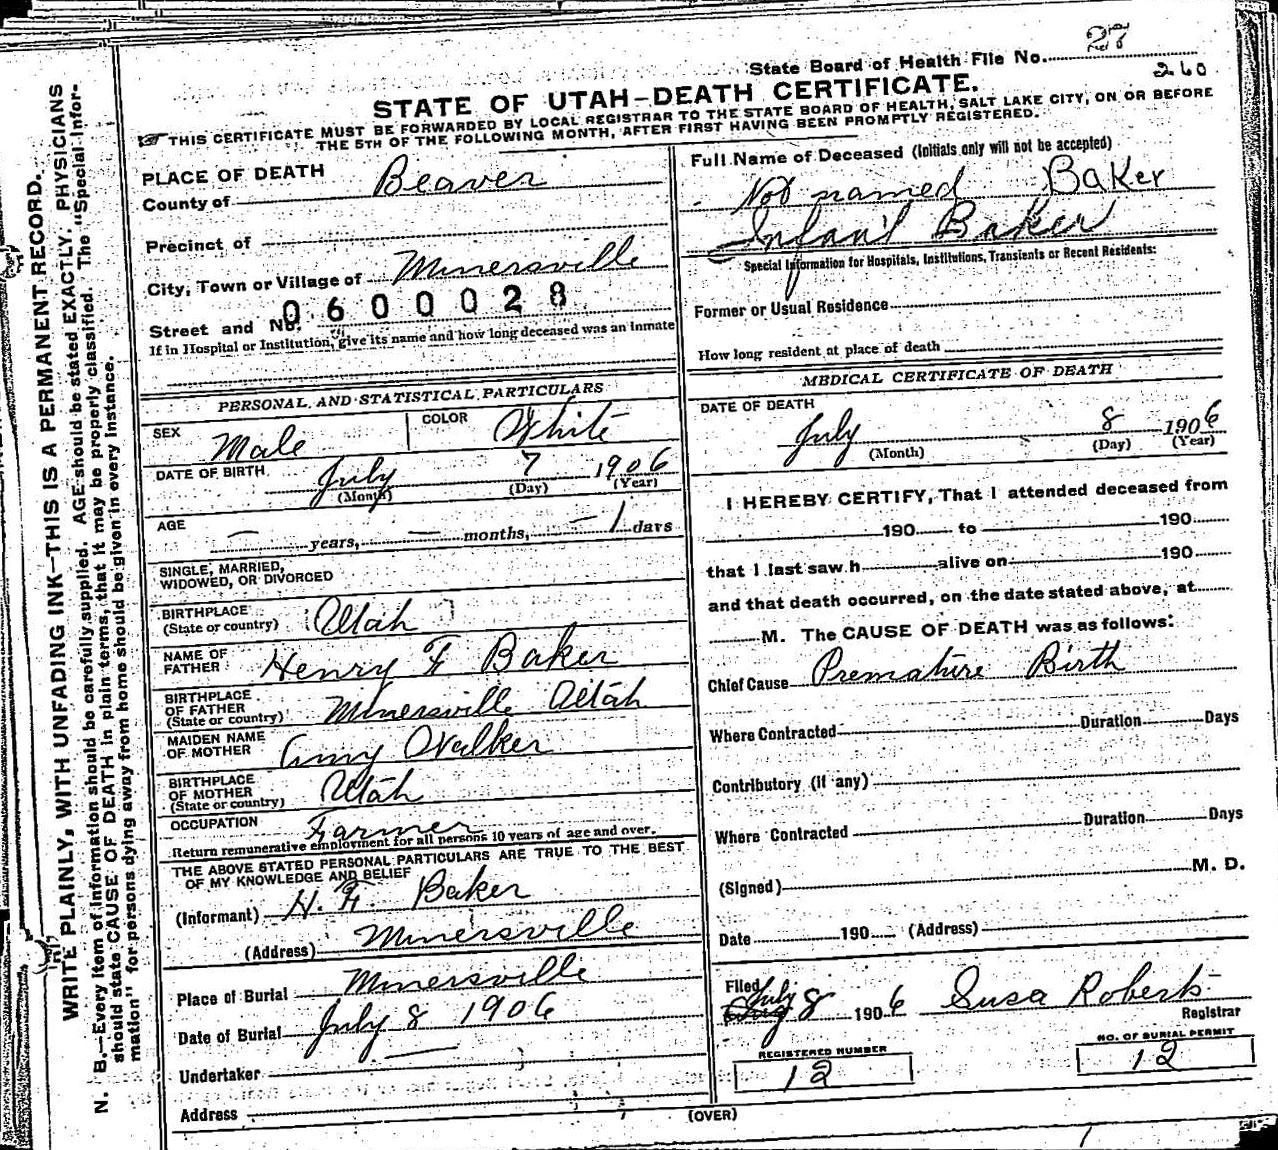 State Board of Health File No. 27
260
STATE OF UTAH—DEATH CERTIFICATE.
THIS CERTIFICATE MUST BE FORWARDED BY LOCAL REGISTRAR TO THE STATE BOARD OF HEALTH, SALT LAKE CITY, ON OR BEFORE
THE 5TH OF THE FOLLOWING MONTH, AFTER FIRST HAVING BEEN PROMPTLY REGISTERED.
WRITE PLAINLY, WITH UNFADING INK—THIS IS A PERMANENT RECORD.
N. B.—Every item of information should be carefully supplied. AGE should be stated EXACTLY. PHYSICIANS
should state CAUSE OF DEATH in plain terms, that it may be properly classified. The "Special Infor-
mation" for persons dying away from home should be given in every instance.
PLACE OF DEATH
County of Beaver
Precinct of
City, Town or Village of Minersville
0600028
Street and No.
If in Hospital or Institution, give its name and how long deceased was an inmate
PERSONAL AND STATISTICAL PARTICULARS
SEX Male COLOR White
DATE OF BIRTH July 7 1906
(Month) (Day) (Year)
AGE — years, — months, — 1 days
SINGLE, MARRIED,
WIDOWED, OR DIVORCED
BIRTHPLACE
(State or country) Utah
NAME OF
FATHER Henry F Baker
BIRTHPLACE
OF FATHER
(State or country) Minersville Utah
MAIDEN NAME
OF MOTHER Amy Walker
BIRTHPLACE
OF MOTHER
(State or country) Utah
OCCUPATION Farmer
Return remunerative employment for all persons 10 years of age and over.
THE ABOVE STATED PERSONAL PARTICULARS ARE TRUE TO THE BEST
OF MY KNOWLEDGE AND BELIEF
(Informant) H. F. Baker
(Address) Minersville
Place of Burial Minersville
Date of Burial July 8 1906
Undertaker —
Address
Full Name of Deceased (Initials only will not be accepted)
Not named Baker
Infant Baker
Special Information for Hospitals, Institutions, Transients or Recent Residents:
Former or Usual Residence
How long resident at place of death
MEDICAL CERTIFICATE OF DEATH
DATE OF DEATH
July 8 1906
(Month) (Day) (Year)
I HEREBY CERTIFY, That I attended deceased from
190 to 190
that I last saw h alive on 190
and that death occurred, on the date stated above, at
M. The CAUSE OF DEATH was as follows:
Chief Cause Premature Birth
Where Contracted Duration Days
Contributory (if any)
Where Contracted Duration Days
(Signed) M. D.
Date 190 (Address)
Filed July 8 1906 Susa Roberts
Registrar
REGISTERED NUMBER
12
NO. OF BURIAL PERMIT
12
(OVER)